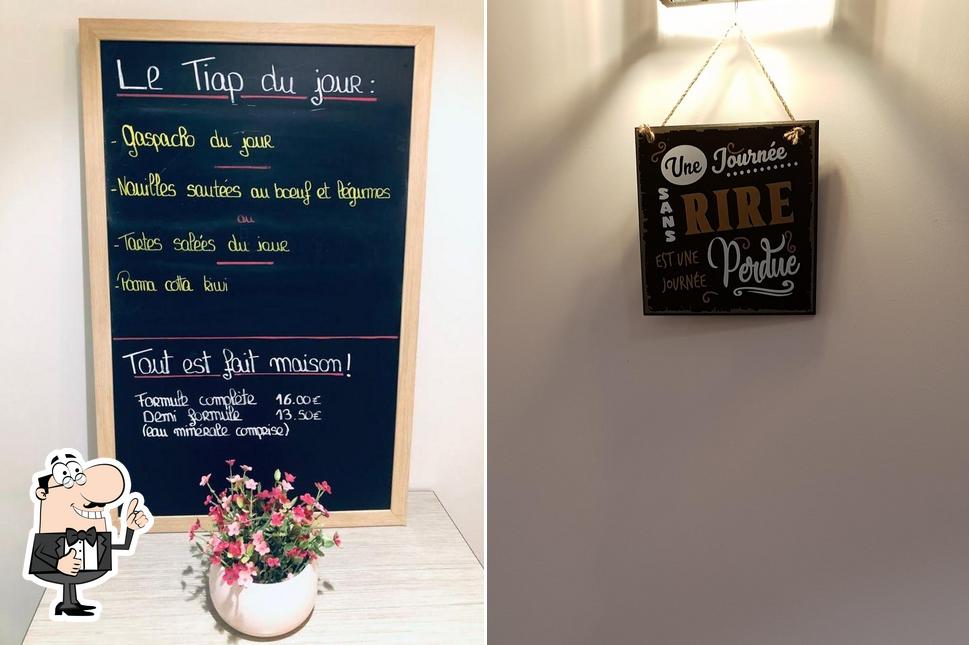 Le Tiap du jour :
- Gaspacho du jour
- Nouilles sautées au boeuf et légumes
ou
- Tartes salées du jour
- Panna cotta kiwi
Tout est fait maison !
Formule complète 16.00€
Demi formule 13.50€
(eau minérale comprise)
Une Journée
SANS RIRE
EST UNE
JOURNÉE Perdue